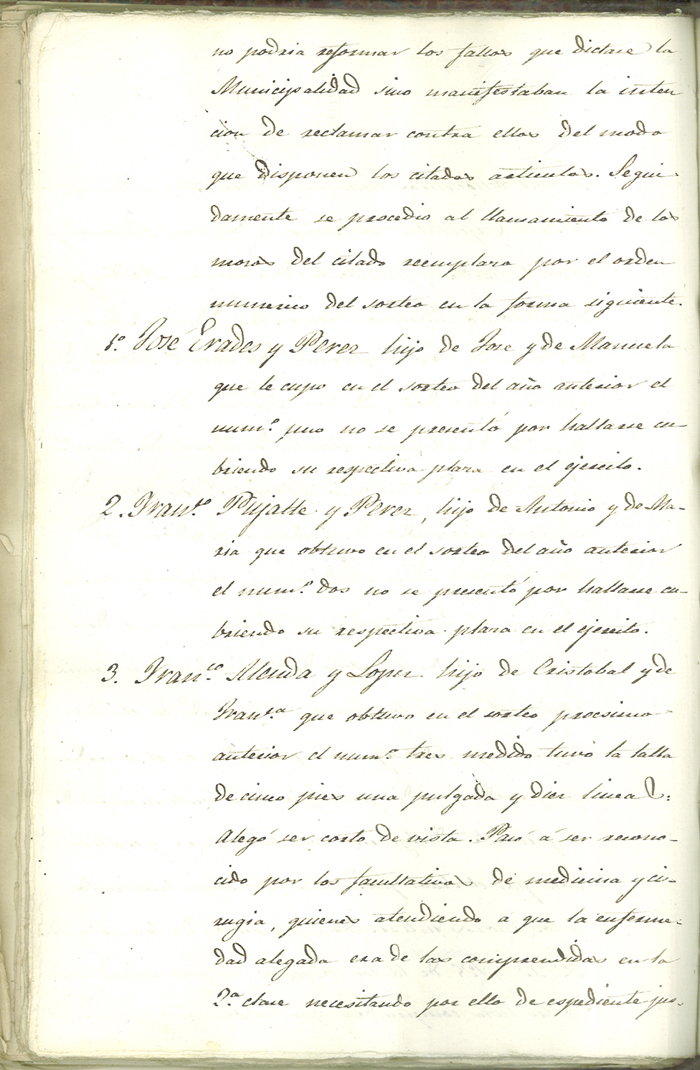 no podria reformar los fallos que dictare la
Municipalidad sino manifestaban la inten
cion de reclamar contra ellos del modo
que disponen los citados articulos. Segui
damente se procedio al llamamiento de los
mozos del citado reemplazo por el orden
numerico del sorteo en la forma siguiente.
1.º José Erades y Perez hijo de Jose y de Manuela
que le cupo en el sorteo del año anterior el
num.º uno no se presentó por hallarse cu-
briendo su respectiva plaza en el ejercito.
2. Fran.co Pujalte y Perez, hijo de Antonio y de Ma-
ria que obtuvo en el sorteo del año anterior
el num.º dos no se presentó por hallarse cu-
briendo su respectiva plaza en el ejercito.
3. Fran.co Alenda y Lopez hijo de Cristobal y de
Fran.ca que obtuvo en el sorteo procsimo
anterior el num.º tres medido tuvo la talla
de cinco pies una pulgada y diez lineas.
Alegó ser corto de vista. Pasó á ser recono-
cido por los facultativos de medicina y ci-
rugia, quienes atendiendo a que la enferme-
dad alegada era de las comprendidas en la
2.ª clase necesitando por ello de espediente jus-